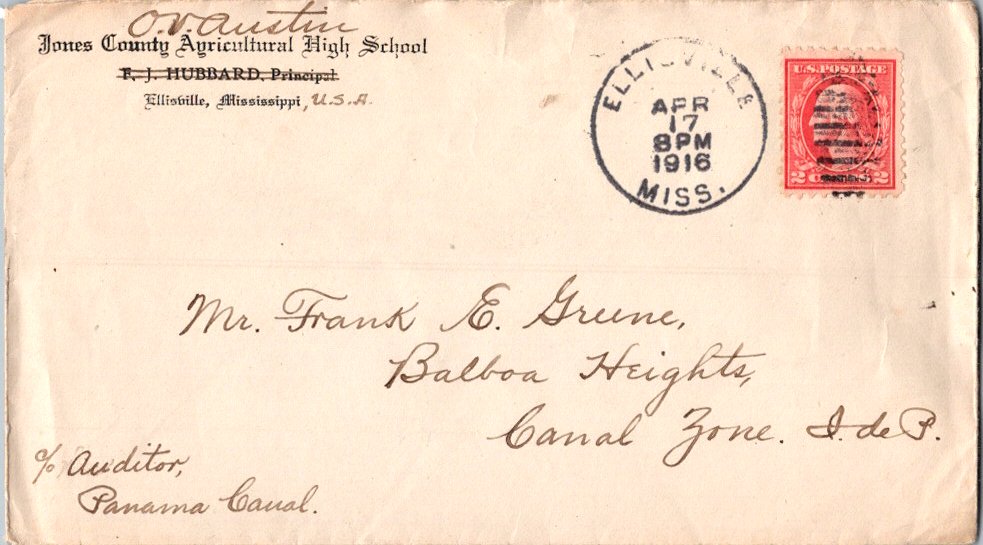 O.V. Austin
Jones County Agricultural High School
F. J. HUBBARD, Principal
Ellisville, Mississippi, U.S.A.
ELLISVILLE
APR
17
8PM
1916
MISS.
U.S. POSTAGE
2 2
Mr. Frank E. Greene,
Balboa Heights,
Canal Zone. I. de P.
c/o Auditor,
Panama Canal.